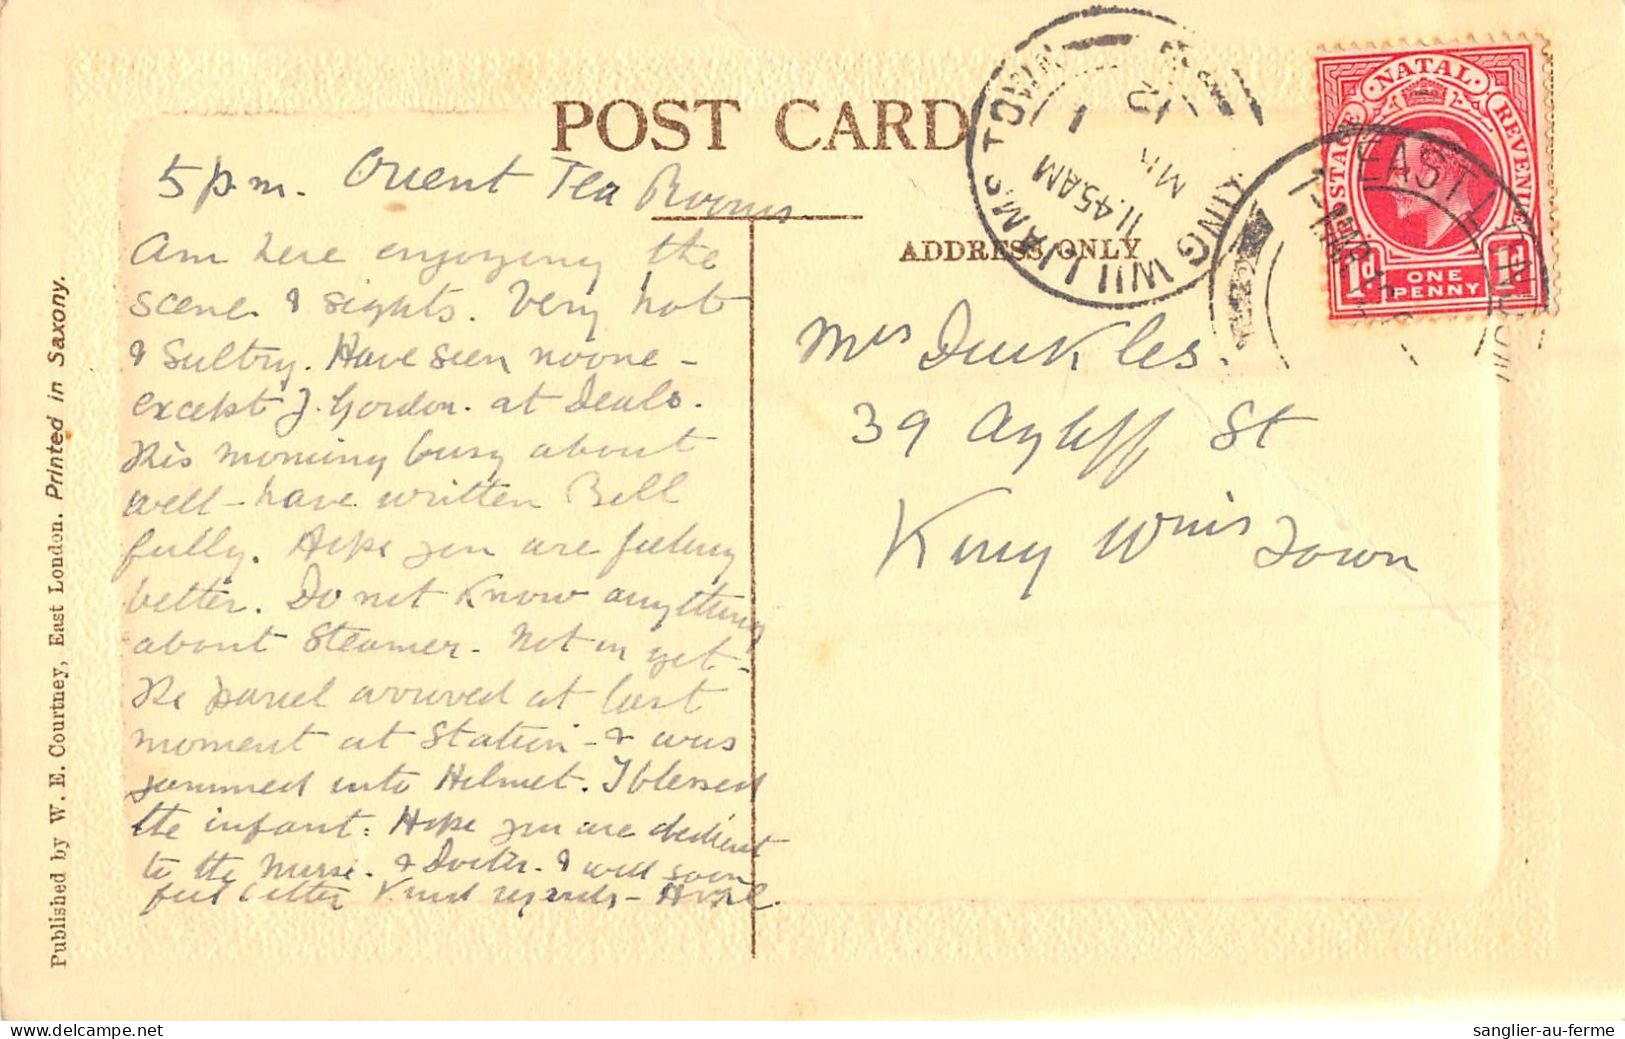 POST CARD
ADDRESS ONLY
5 p.m. Orient Tea Rooms
Am here enjoying the
scene & sights. Very hot
& Sultry. Have seen no one -
except J. Gordon. at Deals.
This morning busy about
well - have written Bell
fully. Hope you are feeling
better. Do not know anything
about Steamer - Not in yet -
The parcel arrived at last
moment at Station - & was
jammed into Helmet. I blessed
the infant. Hope you are obedient
to the Nurse. & Doctor. & will soon
feel better Kind regards -
Mrs
39 Ayliff St
King Wms Town
Published by W. E. Courtney, East London. Printed in Saxony.
KING WILLIAMS TOWN
11.45AM
MR 1
12
EAST LONDON
NATAL
POSTAGE REVENUE
1d ONE PENNY 1d
sanglier-au-ferme